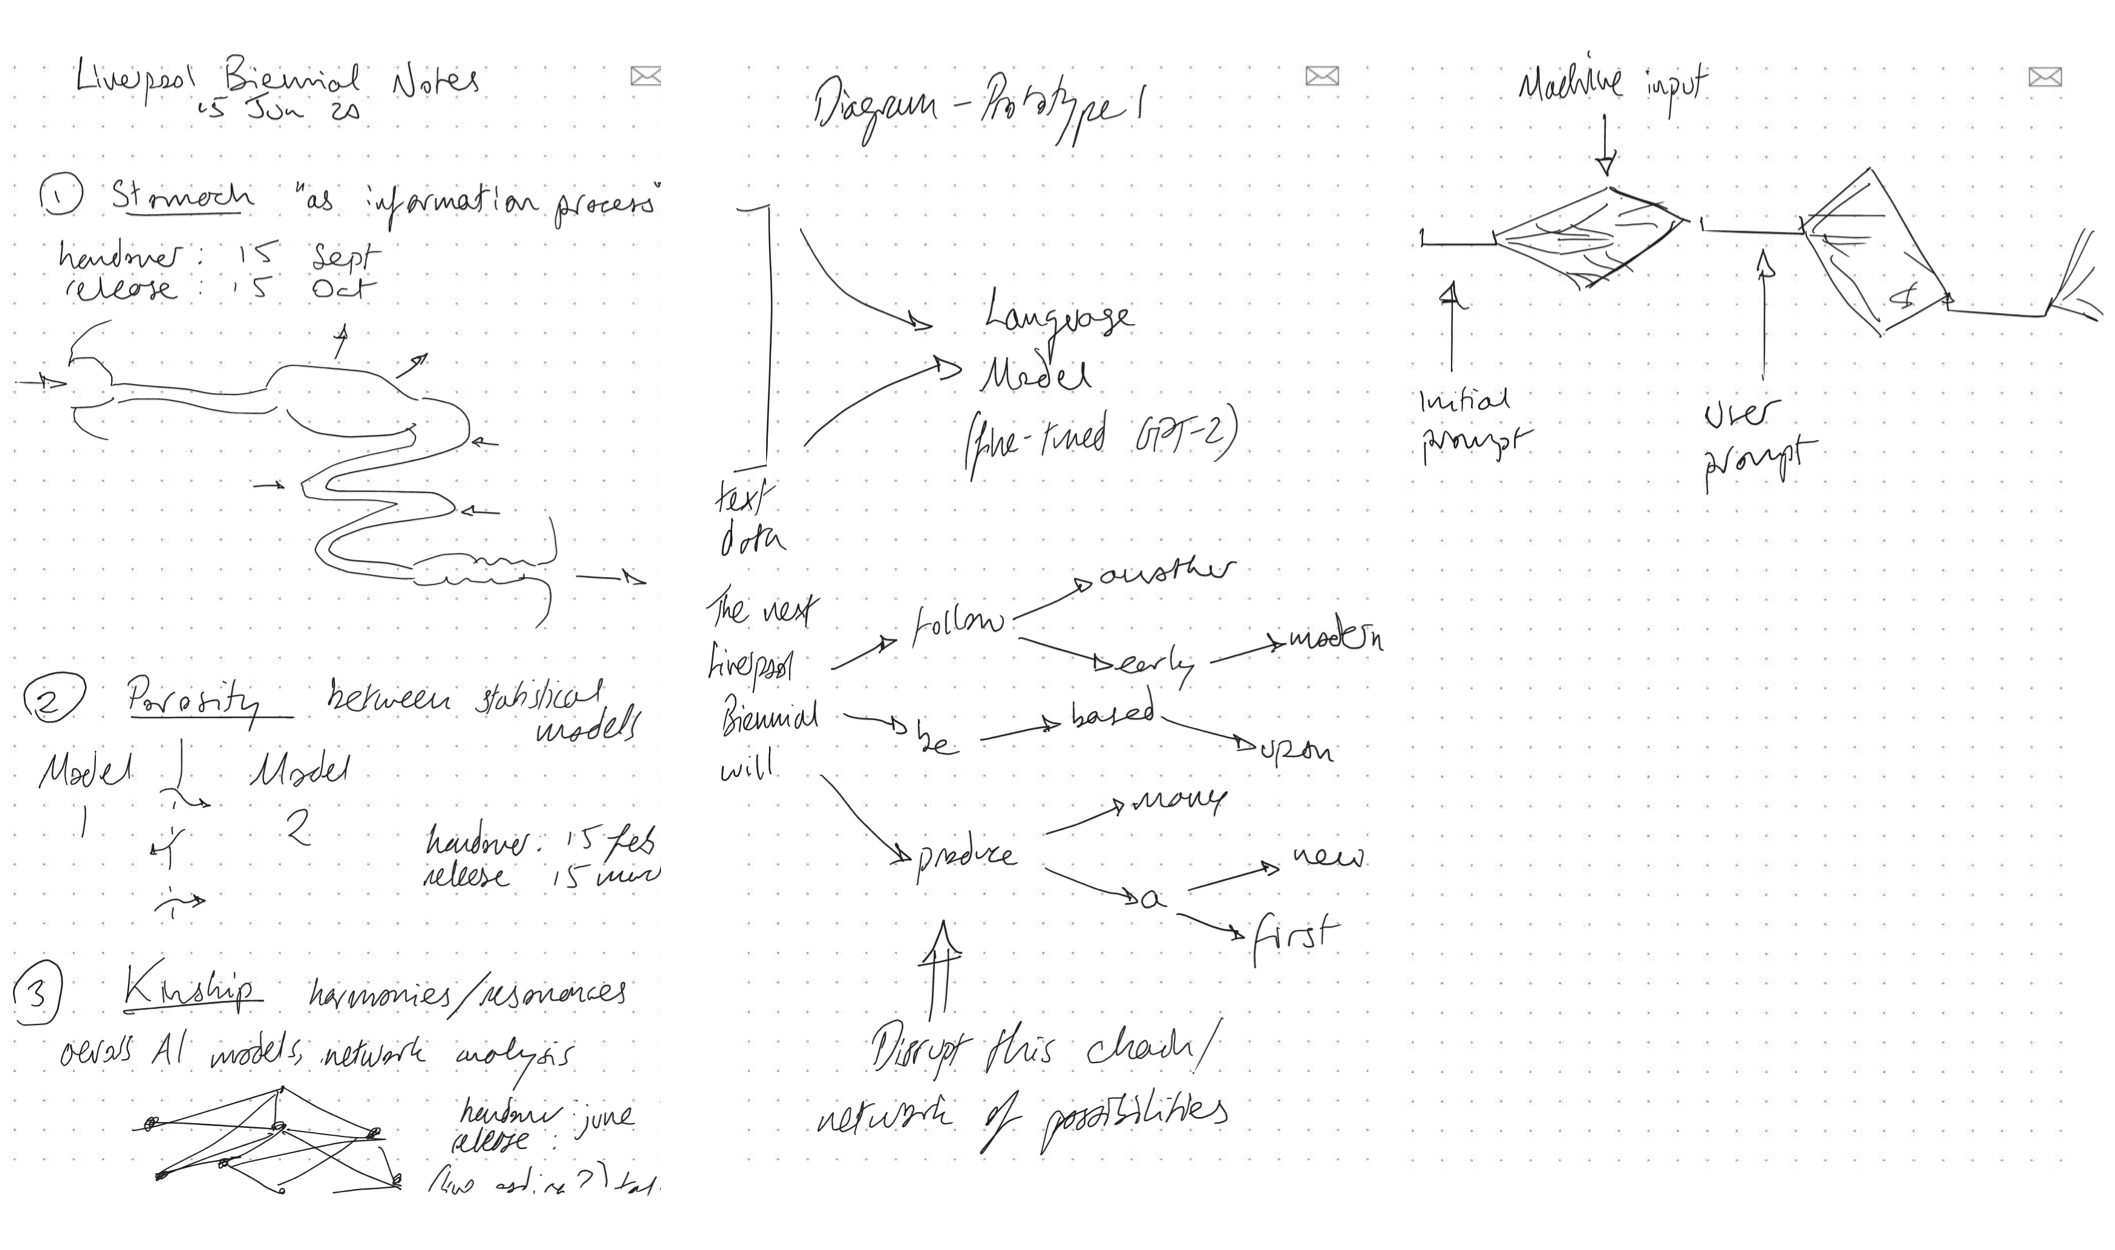 Liverpool Biennial Notes
15 Jun 20
1 Stomach "as information process"
handover: 15 Sept
release: 15 Oct
2 Porosity between statistical
models
Model Model
1 2
handover: 15 feb
release 15
3 Kinship harmonies/resonances
AI models, network analysis
handover: june
release:
Diagram - Prototype 1
Language
Model
(fine-tuned GPT-2)
text
data
The next
Liverpool
Biennial
will
follow
another
early
modern
be
based
upon
produce
many
a
new
first
Disrupt this chain/
network of possibilities
Machine input
Initial
prompt
User
prompt